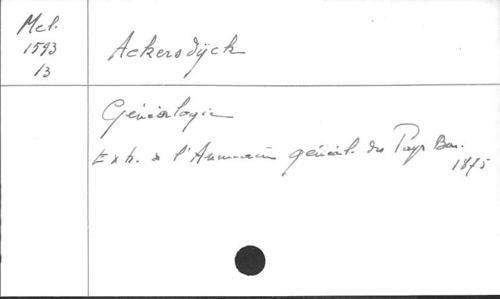 Mel.
1593
13
Ackersdÿck
Généalogie
Extr. de l'Annuaire général. des Pays Bas.
1875